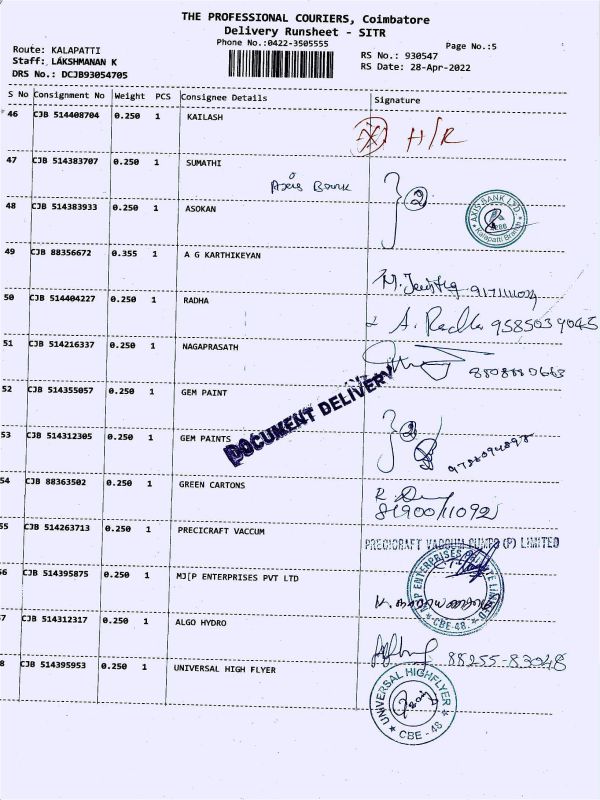 THE PROFESSIONAL COURIERS, Coimbatore
Delivery Runsheet - SITR
Phone No.:0422-3505555
Page No.:5
Route: KALAPATTI
RS No.: 930547
Staff: LAKSHMANAN K
RS Date: 28-Apr-2022
DRS No.: DCJB93054705
S No Consignment No Weight PCS Consignee Details Signature
46 CJB 514408704 0.250 1 KAILASH H/R
47 CJB 514383707 0.250 1 SUMATHI
Axis Bank 2
48 CJB 514383933 0.250 1 ASOKAN
AXIS BANK LTD. Kalapatti Branch
49 CJB 88356672 0.355 1 A G KARTHIKEYAN
50 CJB 514404227 0.250 1 RADHA
A. Radha 9585039045
51 CJB 514216337 0.250 1 NAGAPRASATH
8808880663
52 CJB 514355057 0.250 1 GEM PAINT
DOCUMENT DELIVERY
2
53 CJB 514312305 0.250 1 GEM PAINTS
54 CJB 88363502 0.250 1 GREEN CARTONS
55 CJB 514263713 0.250 1 PRECICRAFT VACCUM
PRECICRAFT VACUUM PUMPS (P) LIMITED
56 CJB 514395875 0.250 1 MJ[P ENTERPRISES PVT LTD
ENTERPRISES PRIVATE LIMITED CBE-48.
57 CJB 514312317 0.250 1 ALGO HYDRO
88255-83048
58 CJB 514395953 0.250 1 UNIVERSAL HIGH FLYER
UNIVERSAL HIGHFLYER CBE - 48